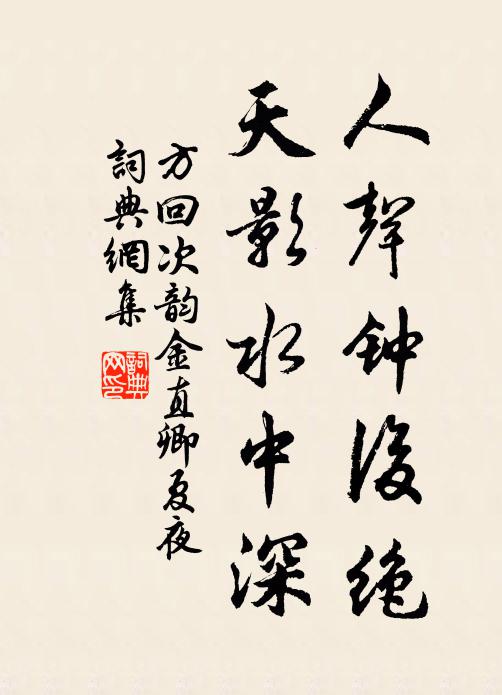 人聲鈡後絶
天影水中深
方回次韵金直卿夏夜
詞典網集
詞典网印